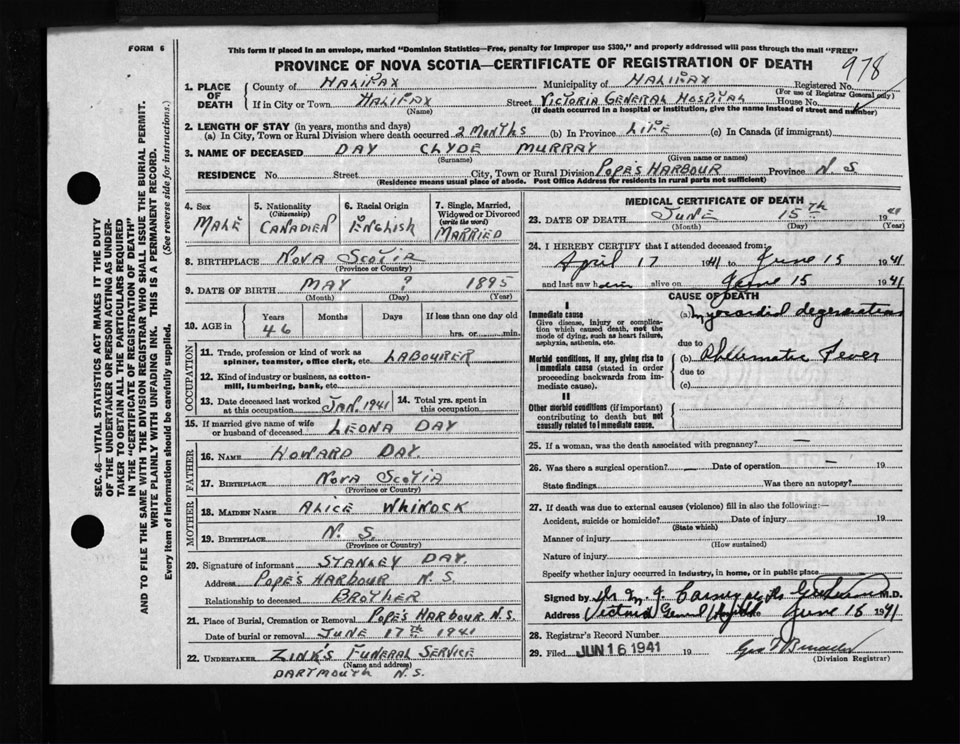 FORM 6
This form if placed in an envelope, marked "Dominion Statistics—Free, penalty for improper use $300," and properly addressed will pass through the mail "FREE"
PROVINCE OF NOVA SCOTIA—CERTIFICATE OF REGISTRATION OF DEATH
978
1. PLACE OF DEATH
County of HALIFAX Municipality of HALIFAX Registered No.
(For use of Registrar General only)
If in City or Town HALIFAX Street VICTORIA GENERAL HOSPITAL House No.
(Name) (If death occurred in a hospital or institution, give the name instead of street and number)
2. LENGTH OF STAY (in years, months and days)
(a) In City, Town or Rural Division where death occurred 2 MONTHS (b) In Province LIFE (c) In Canada (if immigrant)
3. NAME OF DECEASED DAY CLYDE MURRAY
(Surname) (Given name or names)
RESIDENCE No. Street City, Town or Rural Division POPE'S HARBOUR Province N.S.
(Residence means usual place of abode. Post Office Address for residents in rural parts not sufficient)
4. Sex MALE
5. Nationality (Citizenship) CANADIEN
6. Racial Origin ENGLISH
7. Single, Married, Widowed or Divorced (write the word) MARRIED
8. BIRTHPLACE NOVA SCOTIA
(Province or Country)
9. DATE OF BIRTH MAY ? 1895
(Month) (Day) (Year)
10. AGE in Years Months Days If less than one day old
46 hrs. or min.
OCCUPATION
11. Trade, profession or kind of work as spinner, teamster, office clerk, etc. LABOURER
12. Kind of industry or business, as cotton-mill, lumbering, bank, etc.
13. Date deceased last worked at this occupation JAN. 1941 14. Total yrs. spent in this occupation
15. If married give name of wife or husband of deceased LEONA DAY
FATHER
16. NAME HOWARD DAY
17. BIRTHPLACE NOVA SCOTIA
(Province or Country)
MOTHER
18. MAIDEN NAME ALICE WHINOCK
19. BIRTHPLACE N. S.
(Province or Country)
20. Signature of informant STANLEY DAY.
Address POPE'S HARBOUR N.S.
Relationship to deceased BROTHER
21. Place of Burial, Cremation or Removal POPE'S HARBOUR. N.S.
Date of burial or removal JUNE 17th 1941
22. UNDERTAKER ZINK'S FUNERAL SERVICE
(Name and address)
DARTMOUTH N.S.
MEDICAL CERTIFICATE OF DEATH
23. DATE OF DEATH JUNE 15th 1941
(Month) (Day) (Year)
24. I HEREBY CERTIFY that I attended deceased from:
April 17 1941 to June 15 1941
and last saw him alive on June 15 1941
CAUSE OF DEATH
I
Immediate cause
Give disease, injury or complication which caused death, not the mode of dying, such as heart failure, asphyxia, asthenia, etc.
(a) Myocardial degeneration
due to
Morbid conditions, if any, giving rise to immediate cause (stated in order proceeding backwards from immediate cause).
(b) Rheumatic Fever
due to
(c)
II
Other morbid conditions (if important) contributing to death but not causally related to immediate cause.
25. If a woman, was the death associated with pregnancy? —
26. Was there a surgical operation? — Date of operation — 19
State findings Was there an autopsy?
27. If death was due to external causes (violence) fill in also the following:—
Accident, suicide or homicide? Date of injury 19
(State which)
Manner of injury
(How sustained)
Nature of injury
Specify whether injury occurred in industry, in home, or in public place
Signed by Dr M. J. Carney M.D.
Address Victoria General Hospital June 16 1941
28. Registrar's Record Number
29. Filed JUN 16 1941 19
(Division Registrar)
SEC. 46—VITAL STATISTICS ACT MAKES IT THE DUTY OF THE UNDERTAKER OR PERSON ACTING AS UNDERTAKER TO OBTAIN ALL THE PARTICULARS REQUIRED IN THE "CERTIFICATE OF REGISTRATION OF DEATH" AND TO FILE THE SAME WITH THE DIVISION REGISTRAR WHO SHALL ISSUE THE BURIAL PERMIT.
WRITE PLAINLY WITH UNFADING INK. THIS IS A PERMANENT RECORD.
Every item of information should be carefully supplied. (See reverse side for instructions.)